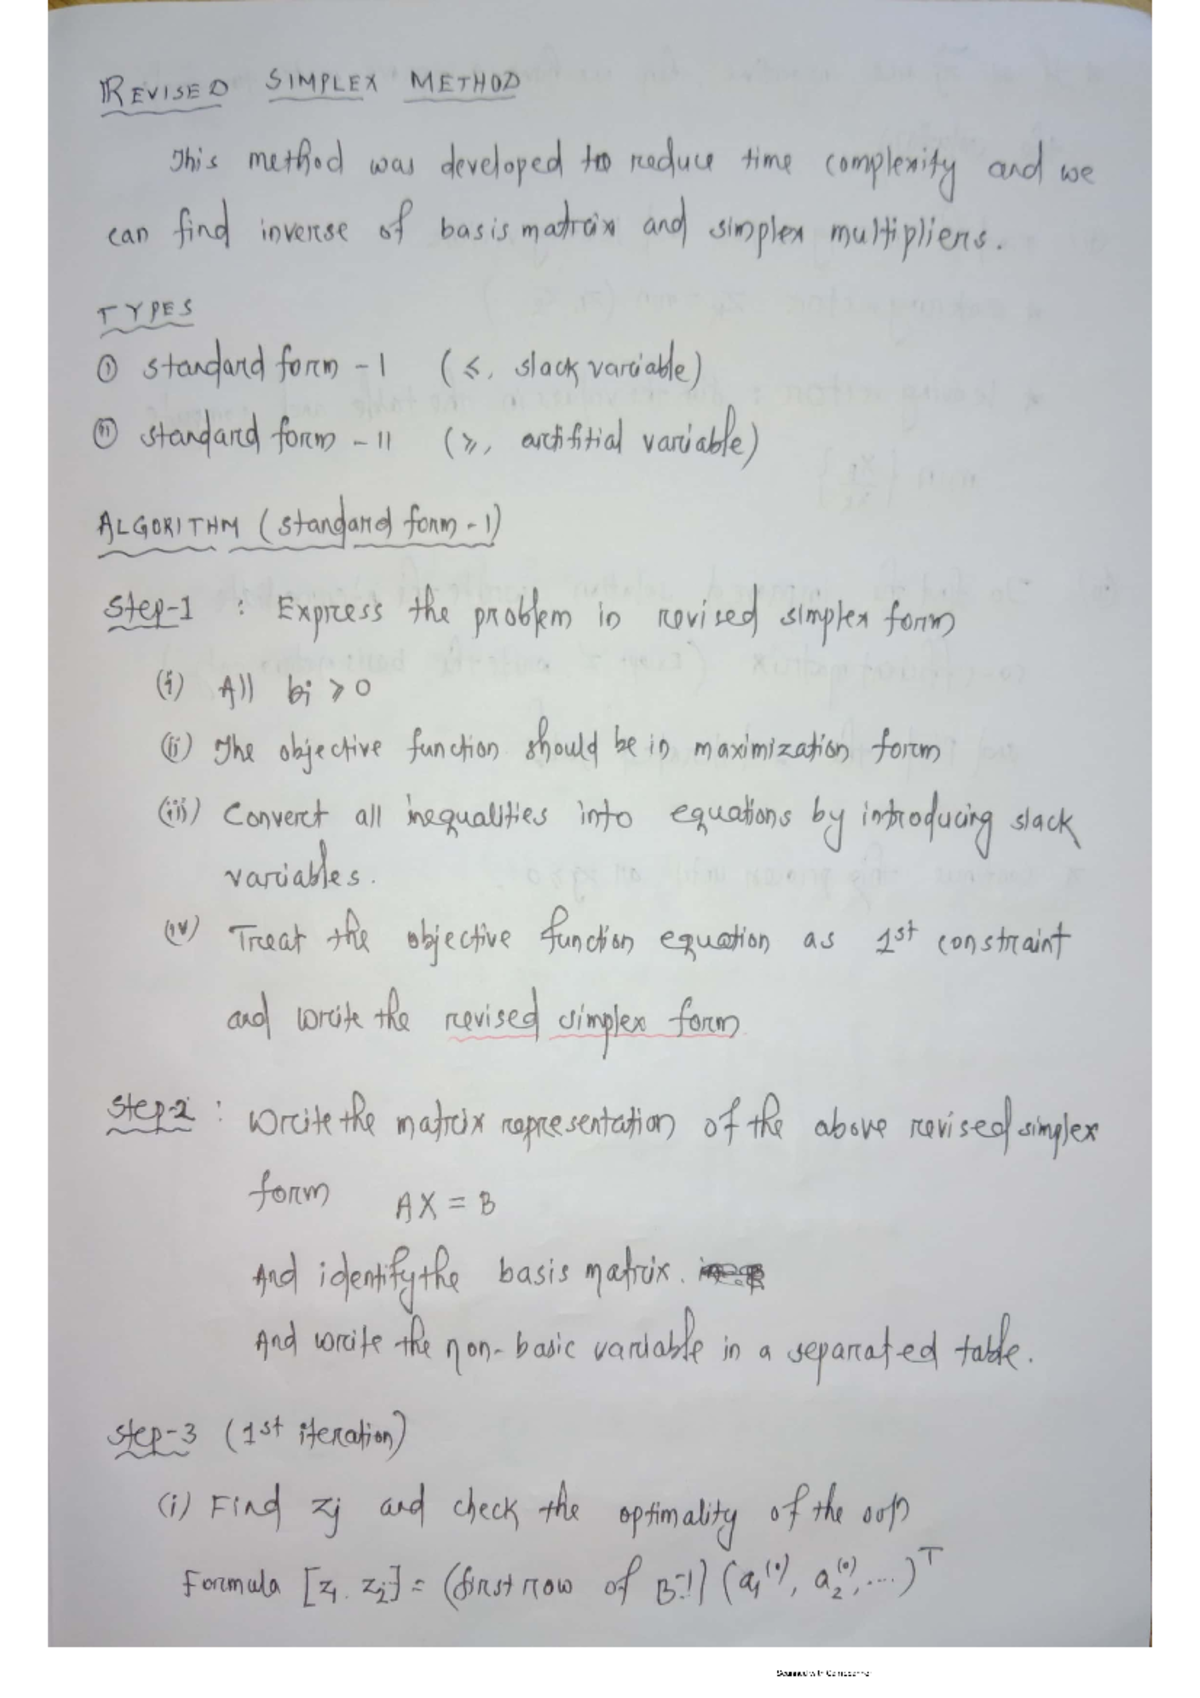 REVISED SIMPLEX METHOD
This method was developed to reduce time complexity and we
can find inverse of basis matrix and simplex multipliers.
TYPES
(i) standard form - I (≤, slack variable)
(ii) standard form - II (≥, artifitial variable)
ALGORITHM (standard form - I)
Step-1 : Express the problem in revised simplex form
(i) All bi ≥ 0
(ii) The objective function should be in maximization form
(iii) Convert all inequalities into equations by introducing slack
variables.
(iv) Treat the objective function equation as 1st constraint
and write the revised simplex form
Step-2 : Write the matrix representation of the above revised simplex
form AX = B
And identify the basis matrix.
And write the non-basic variable in a separated table.
Step-3 (1st iteration)
(i) Find zj and check the optimality of the
Formula [z1, z2] = (first row of B-1) (a1(0), a2(0), ....)T
Scanned with CamScanner